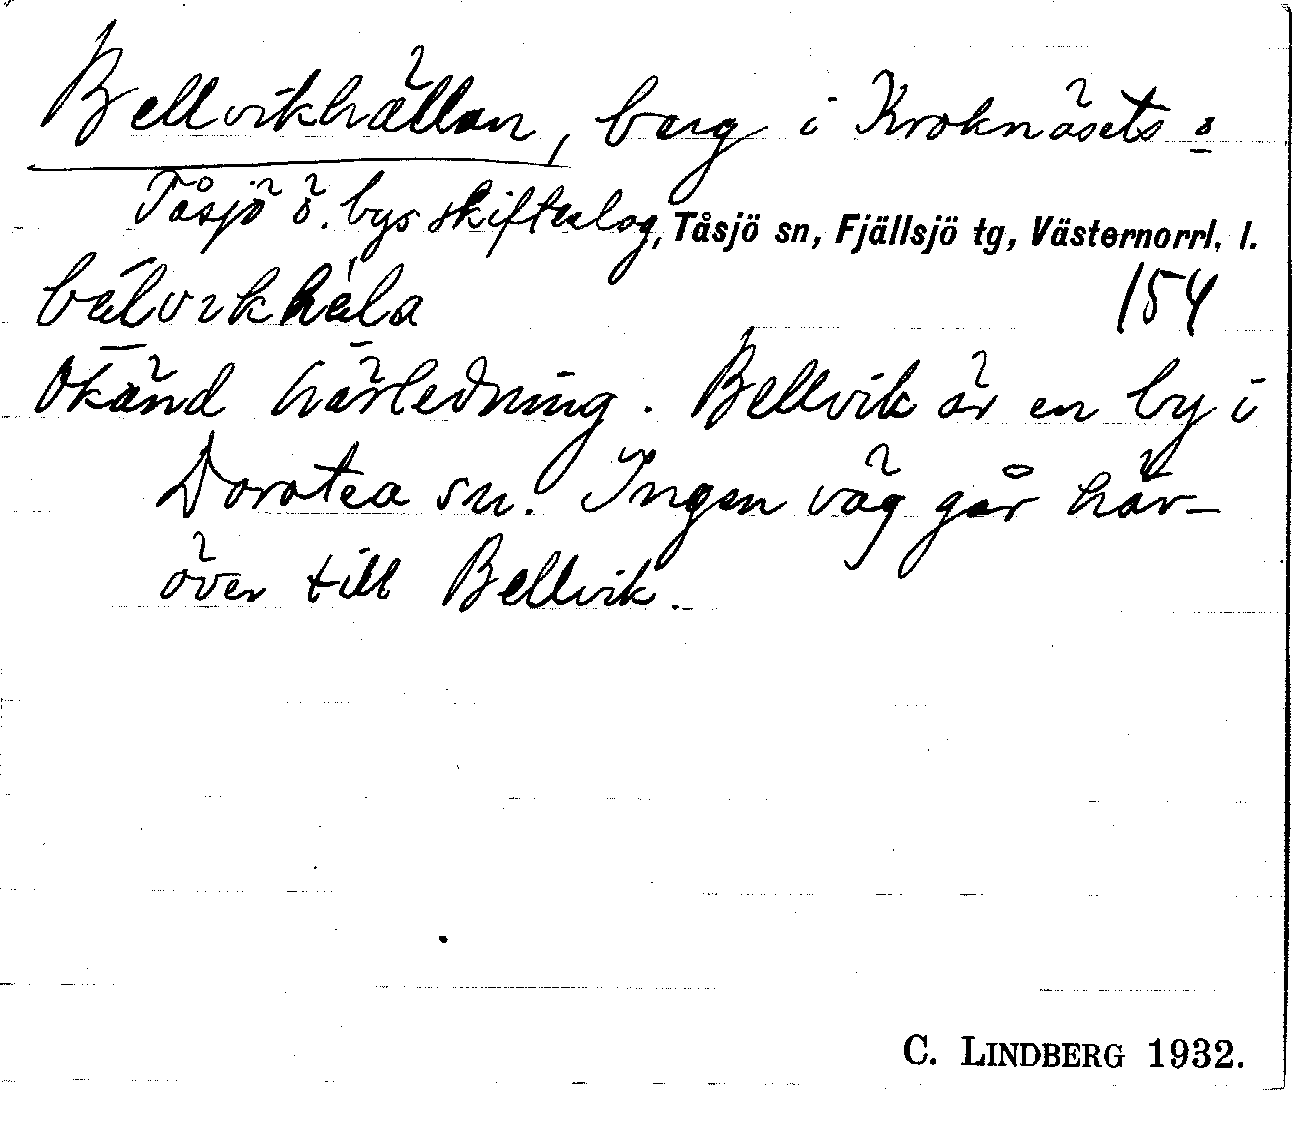 Bellvikhällan, berg i Kroknäsets o
Tåsjö ö. bys skifteslag, Tåsjö sn, Fjällsjö tg, Västernorrl. l.
bälvikhäla
154
Okänd härledning. Bellvik är en by i
Dorotea sn. Ingen väg går här-
över till Bellvik.
C. LINDBERG 1932.